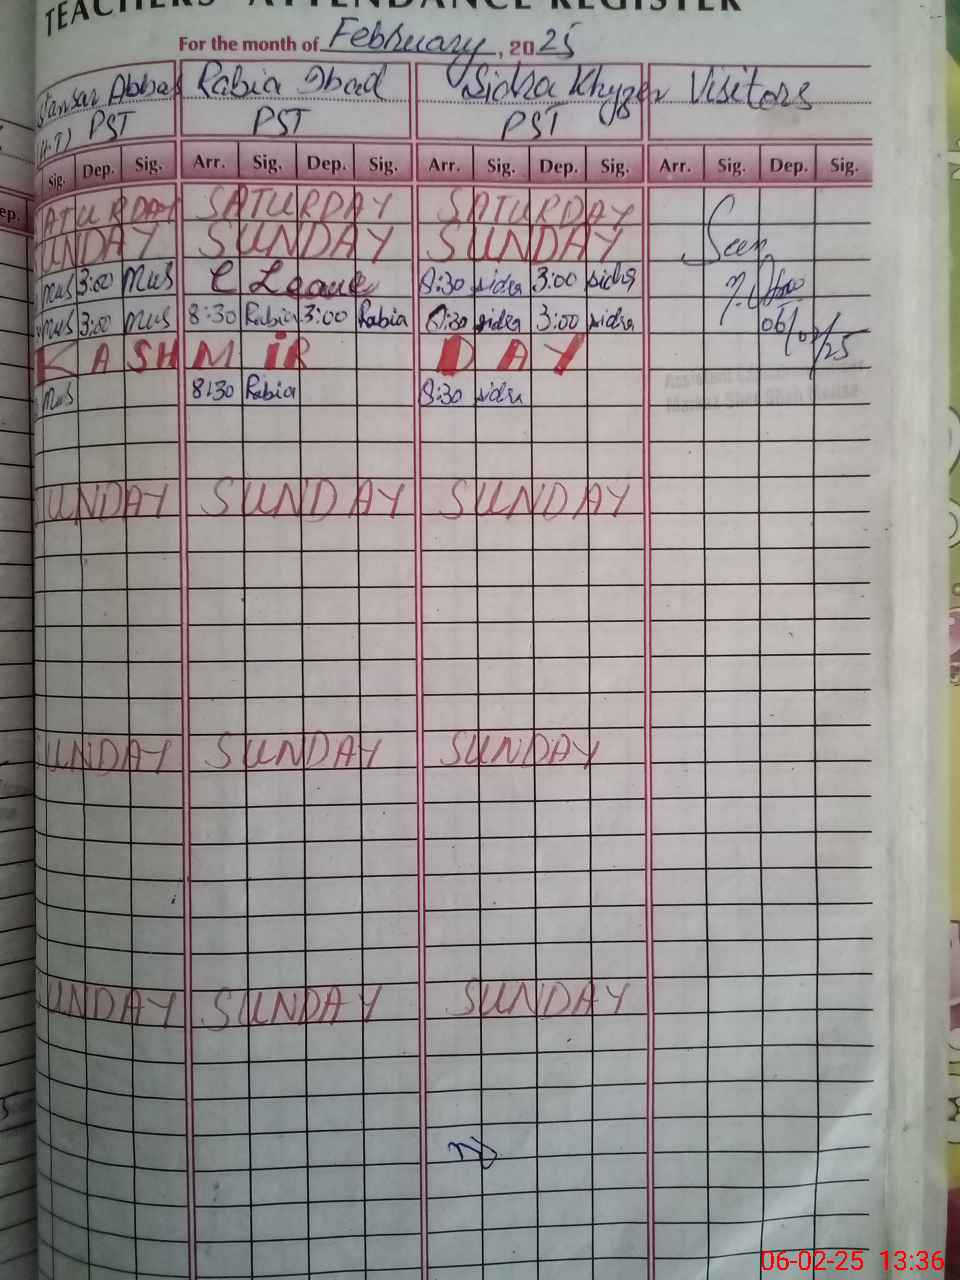 TEACHERS' ATTENDANCE REGISTER
For the month of February, 2025
Abbas Rabia Ibad Sidra Khyzer Visitors
(H.T) PST PST PST
Sig. Dep. Sig. Arr. Sig. Dep. Sig. Arr. Sig. Dep. Sig. Arr. Sig. Dep. Sig.
ep.
ATURDAY SATURDAY SATURDAY
UNDAY SUNDAY SUNDAY Seen
mus 3:00 mus C Leave 8:30 sidra 3:00 sidra
mus 3:00 mus 8:30 Rabia 3:00 Rabia 8:30 sidra 3:00 sidra 06/02/25
KASHMIR DAY
mus 8:30 Rabia 8:30 sidra
UNDAY SUNDAY SUNDAY
UNDAY SUNDAY SUNDAY
UNDAY SUNDAY SUNDAY
06-02-25 13:36